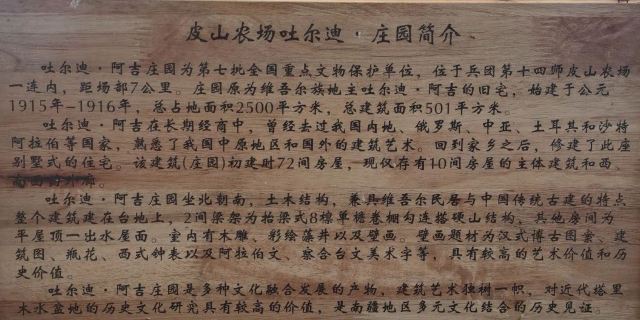 皮山农场吐尔迪·庄园简介
吐尔迪·阿吉庄园为第七批全国重点文物保护单位，位于兵团第十四师皮山农场
一连内，距场部7公里。庄园原为维吾尔族地主吐尔迪·阿吉的旧宅，始建于公元
1915年-1916年，总占地面积2500平方米，总建筑面积501平方米。
吐尔迪·阿吉在长期经商中，曾经去过我国内地、俄罗斯、中亚、土耳其和沙特
阿拉伯等国家，熟悉了我国中原地区和国外的建筑艺术。回到家乡之后，修建了此座
别墅式的住宅。该建筑(庄园)初建时72间房屋，现仅存有10间房屋的主体建筑和西、
南面的外廊。
吐尔迪·阿吉庄园坐北朝南，土木结构，兼具维吾尔民居与中国传统古建的特点
整个建筑建在台地上，2间梁架为抬梁式8檩单檐卷棚勾连搭硬山结构，其他房间为
平屋顶一出水屋面。室内有木雕、彩绘藻井以及壁画。壁画题材为汉式博古图案、建
筑图、瓶花、西式钟表以及阿拉伯文、察合台文美术字等，具有较高的艺术价值和历
史价值。
吐尔迪·阿吉庄园是多种文化融合发展的产物，建筑艺术独树一帜，对近代塔里
木水盆地的历史文化研究具有较高的价值，是南疆地区多元文化结合的历史见证。